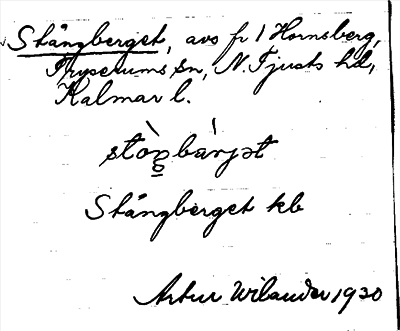 Stångberget, avs fr / Hornsberg,
Tryserums sn, N. Tjusts hd,
Kalmar l.
stòŋbàrjət
Stångberget kb
Artur Wilander 1930